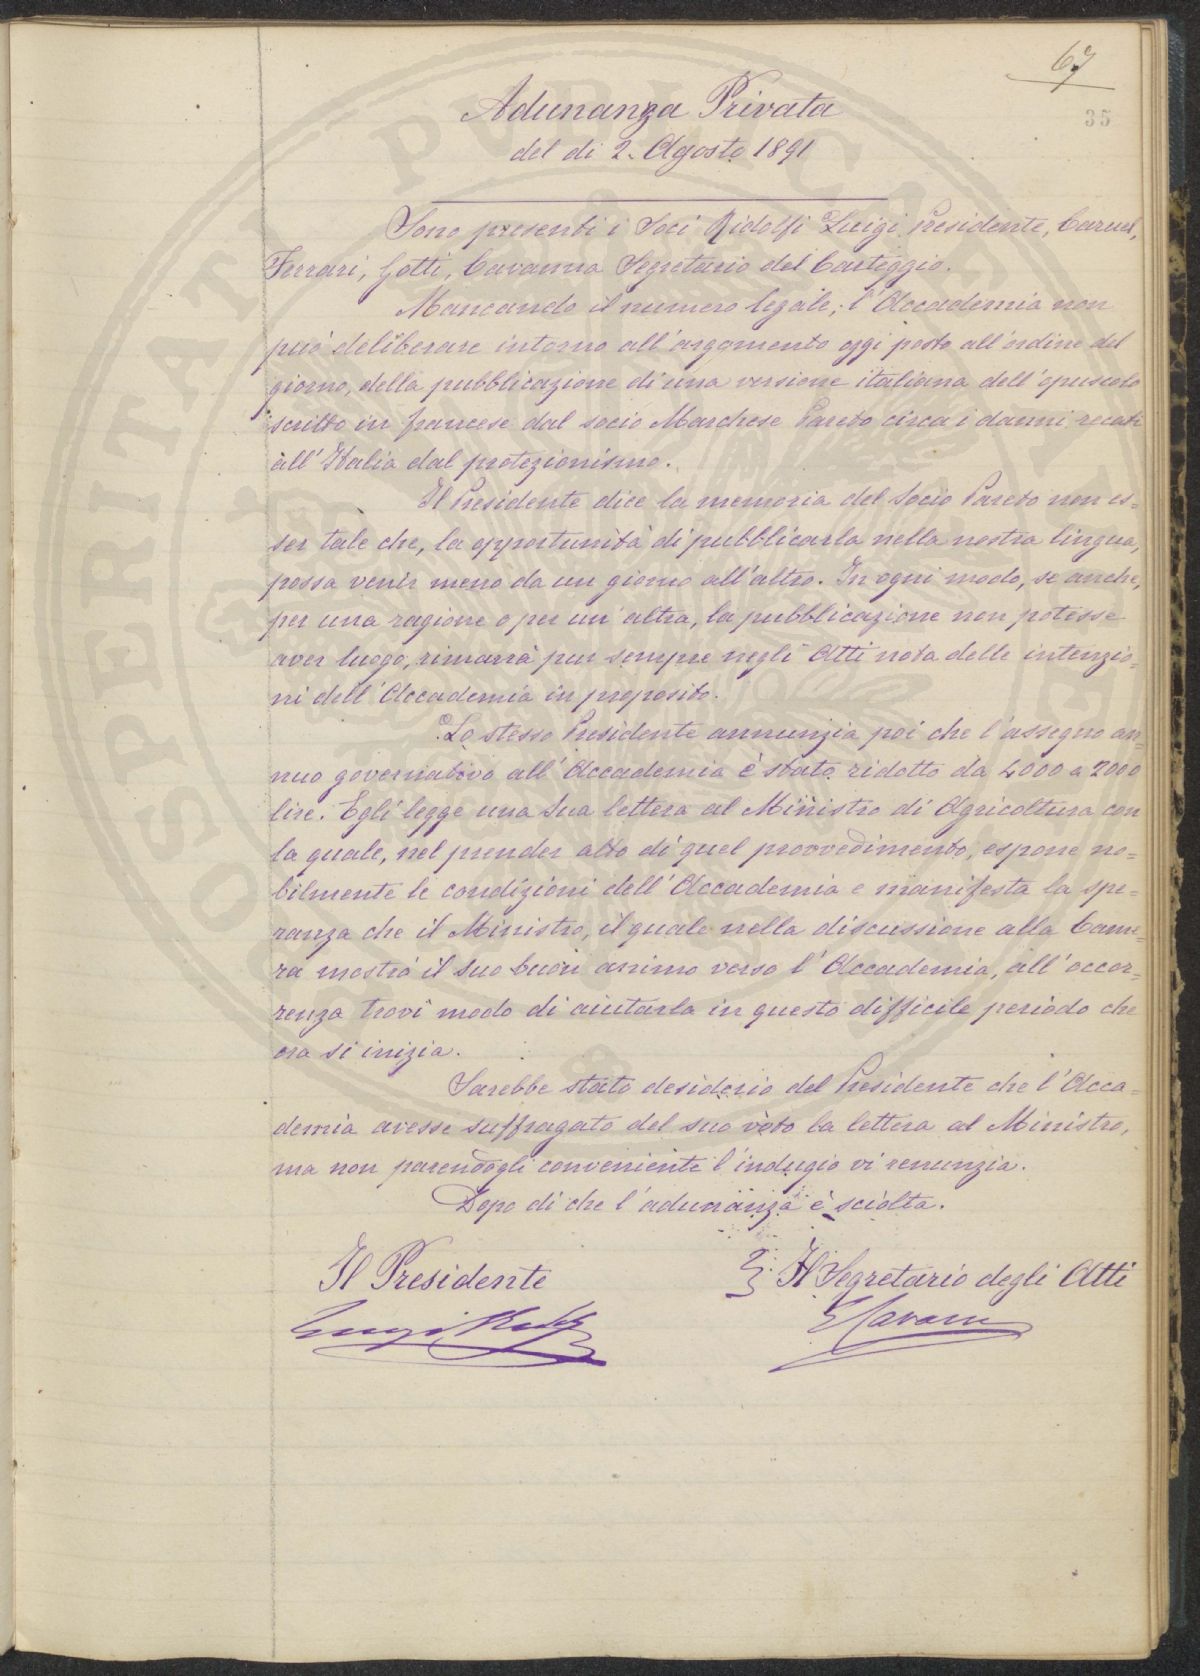 67
35
Adunanza Privata
del dì 2. Agosto 1891
Sono presenti i Soci Ridolfi Luigi Presidente, Caruel,
Ferrari, Gotti, Cavanna Segretario del Carteggio.
Mancando il numero legale, l'Accademia non
può deliberare intorno all'argomento oggi posto all'ordine del
giorno, della pubblicazione di una versione italiana dell'opuscolo
scritto in francese dal socio Marchese Pareto circa i danni recati
all'Italia dal protezionismo.
Il Presidente dice la memoria del Socio Pareto non es=
ser tale che, la opportunità di pubblicarla nella nostra lingua,
possa venir meno da un giorno all'altro. In ogni modo, se anche,
per una ragione o per un'altra, la pubblicazione non potesse
aver luogo, rimarrà pur sempre negli Atti nota delle intenzio=
ni dell'Accademia in proposito.
Lo stesso Presidente annunzia poi che l'assegno an=
nuo governativo all'Accademia è stato ridotto da 4000 a 2000
lire. Egli legge una Sua lettera al Ministro di Agricoltura con
la quale, nel prender atto di quel provvedimento, espone no=
bilmente le condizioni dell'Accademia e manifesta la spe=
ranza che il Ministro, il quale nella discussione alla Came=
ra mostrò il suo buon animo verso l'Accademia, all'occor=
renza trovi modo di aiutarla in questo difficile periodo che
ora si inizia.
Sarebbe stato desiderio del Presidente che l'Acca=
demia avesse suffragato del suo voto la lettera al Ministro,
ma non parendogli conveniente l'indugio vi renunzia.
Dopo di che l'adunanza è sciolta.
Il Presidente
Il Segretario degli Atti
Luigi Ridolfi
G Cavanna
PROSPERITATI PUBLICAE